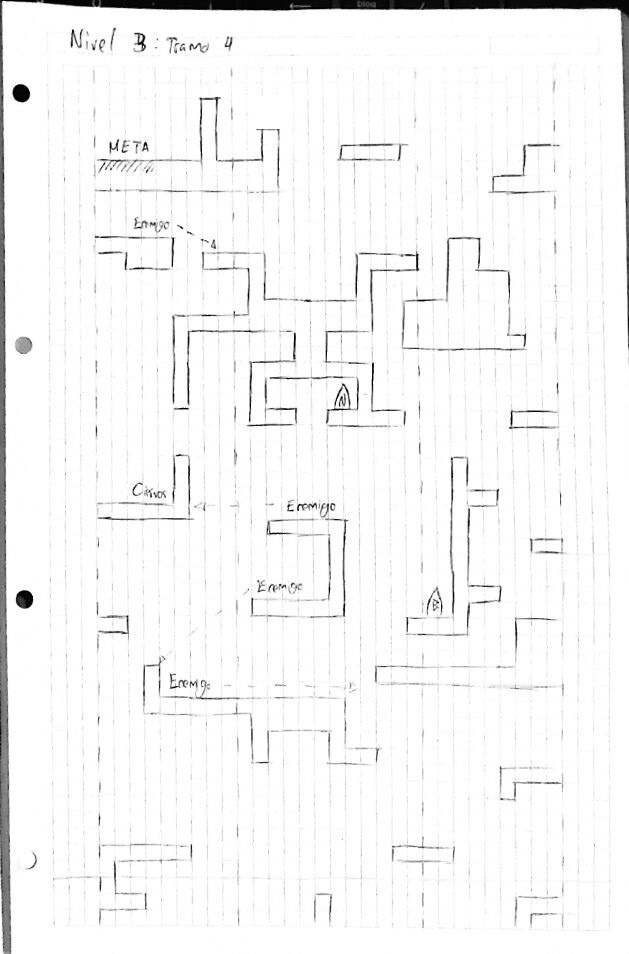 Nivel B: Tramo 4
META
Enemigo
N
Enemigo
Enemigo
B
Enemigo